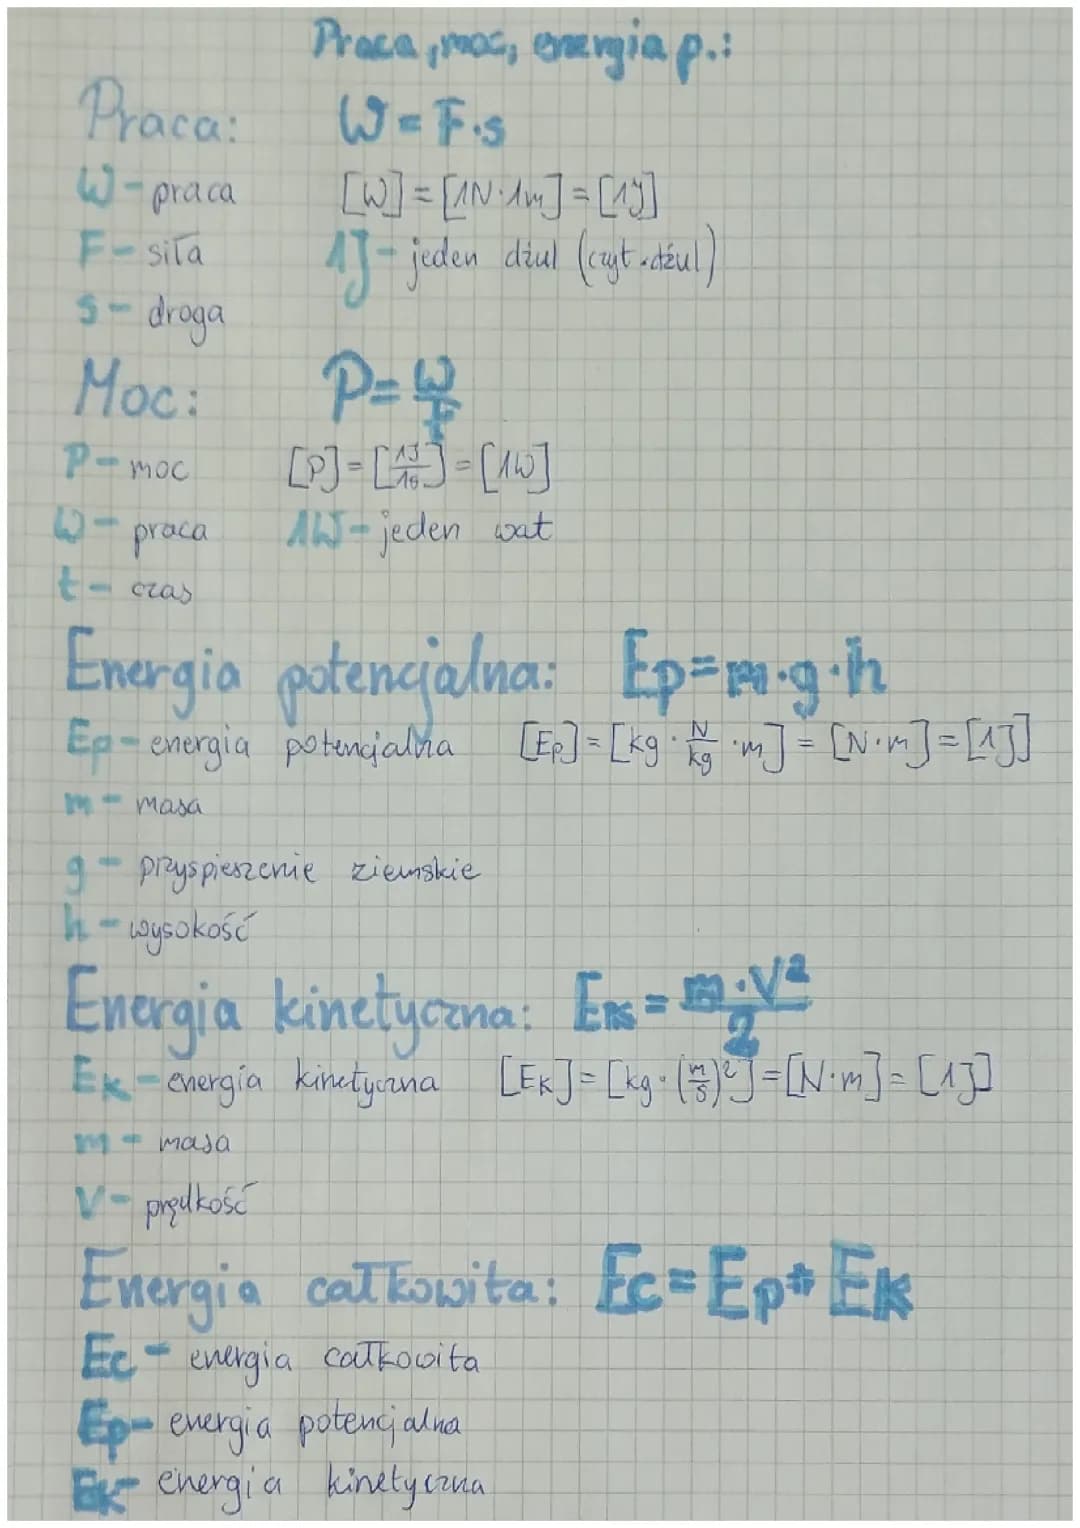 Praca, moc, energia p.:
Praca: W = F·s
W - praca [W] = [1N·1m] = [1J]
F - siła 1J - jeden dżul (czyt. dżul)
s - droga
Moc: P = W/t
P - moc [P] = [1J/1s] = [1W]
W - praca 1W - jeden wat
t - czas
Energia potencjalna: Ep = m·g·h
Ep - energia potencjalna [Ep] = [kg · N/kg · m] = [N·m] = [1J]
m - masa
g - przyspieszenie ziemskie
h - wysokość
Energia kinetyczna: Ek = m·V²/2
Ek - energia kinetyczna [Ek] = [kg · (m/s)²] = [N·m] = [1J]
m - masa
V - prędkość
Energia całkowita: Ec = Ep + Ek
Ec - energia całkowita
Ep - energia potencjalna
Ek - energia kinetyczna